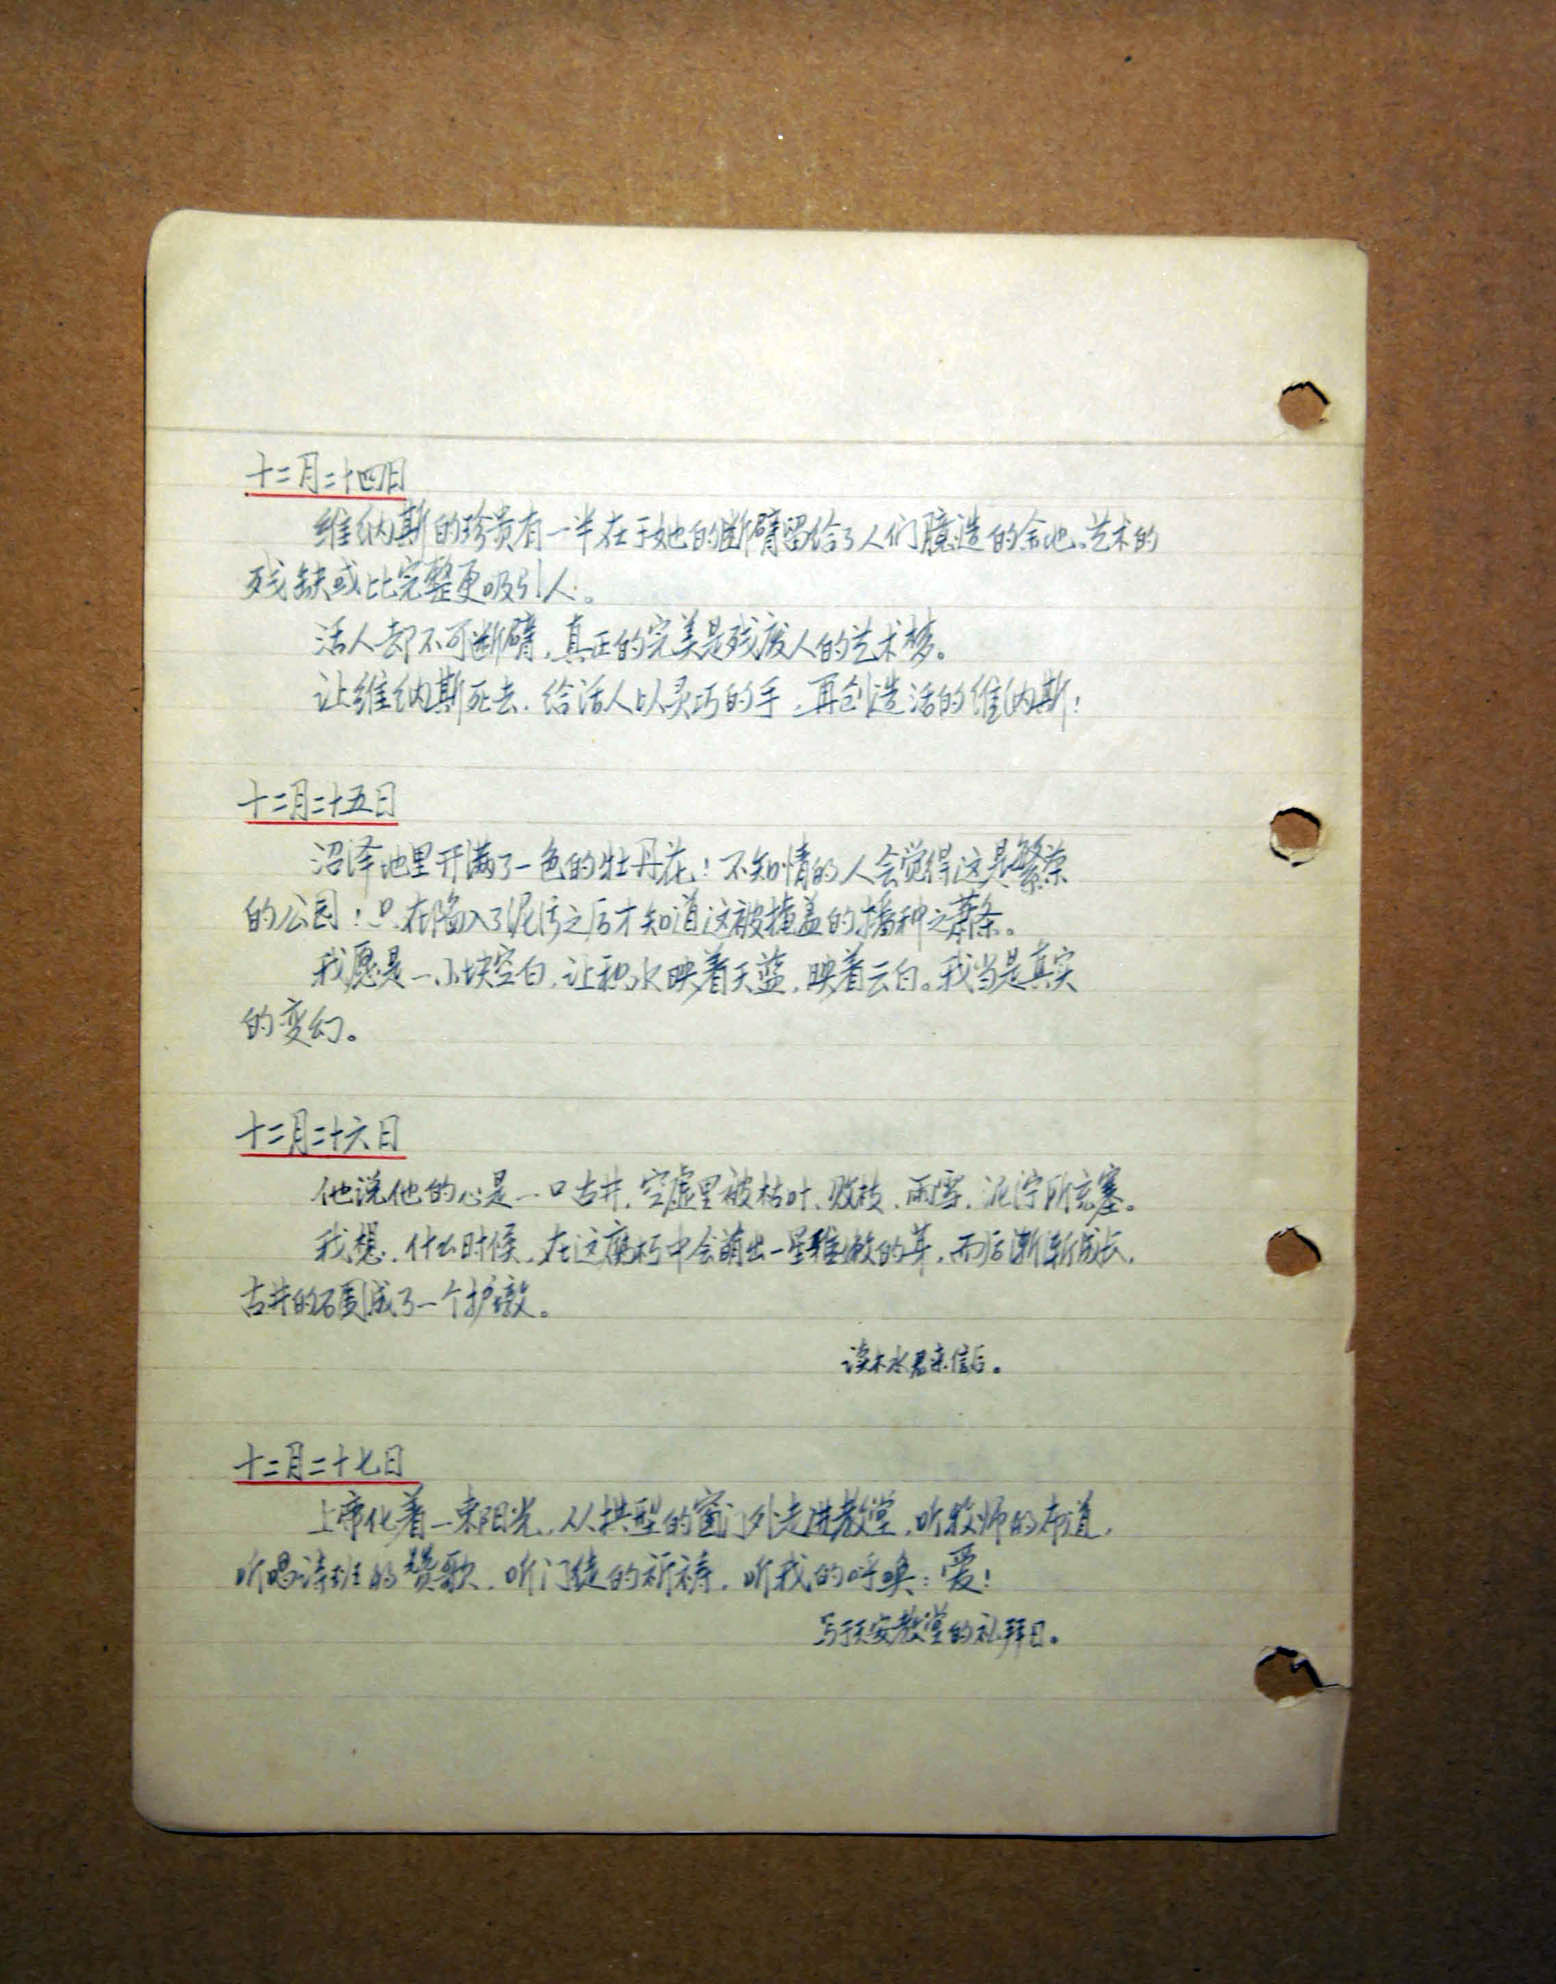 十二月二十四日
维纳斯的珍贵有一半在于她的断臂留给了人们臆造的余地、艺术的
残缺或比完整更吸引人。
活人却不可断臂，真正的完美是残废人的艺术梦。
让维纳斯死去，给活人以灵巧的手，再创造活的维纳斯！
十二月二十五日
沼泽地里开满了一色的牡丹花！不知情的人会觉得这是繁荣
的公园！只在陷入了泥污之后才知道这被掩盖的播种之萧条。
我愿是一小块空白，让积水映着天蓝，映着云白。我当是真实
的变幻。
十二月二十六日
他说他的心是一口古井，空虚里被枯叶、败枝、雨雪、泥泞所充塞。
我想，什么时候，在这腐朽中会萌出一星稚嫩的芽，而后渐渐成长，
古井的石圈成了一个护墩。
读木水君来信后。
十二月二十七日
上帝化着一束阳光，从拱型的窗门外走进教堂，听牧师的布道，
听唱诗班的赞歌，听门徒的祈祷，听我的呼唤：爱！
写于天安教堂的礼拜日。